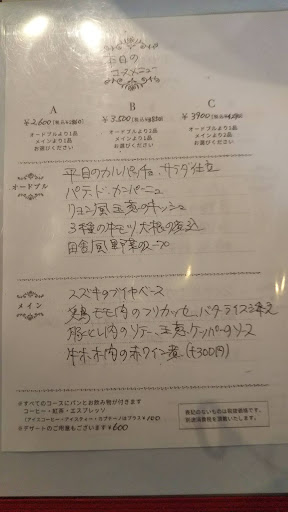 平日の
コースメニュー
A
¥2,600
オードブルより1品
メインより1品
お選びください
B
¥3,500
オードブルより2品
メインより1品
お選びください
C
¥3900
オードブルより1品
メインより2品
お選びください
オードブル
平目のカルパッチョ・サラダ仕立
パテ・ド・カンパーニュ
リヨン風玉葱のキッシュ
3種の牛モツ、大根の煮込
田舎風野菜のスープ
メイン
スズキのブイヤベース
若鶏モモ肉のフリカッセ、バターライス添え
豚ヒレ肉のソテー、玉葱ケッパーのソース
牛ホホ肉の赤ワイン煮 (+300円)
※すべてのコースにパンとお飲み物が付きます
コーヒー・紅茶・エスプレッソ
(アイスコーヒー・アイスティー・カプチーノはプラス¥100)
※デザートのご用意もございます ¥600
表記のないものは税抜価格です。
別途消費税を頂戴いたします。